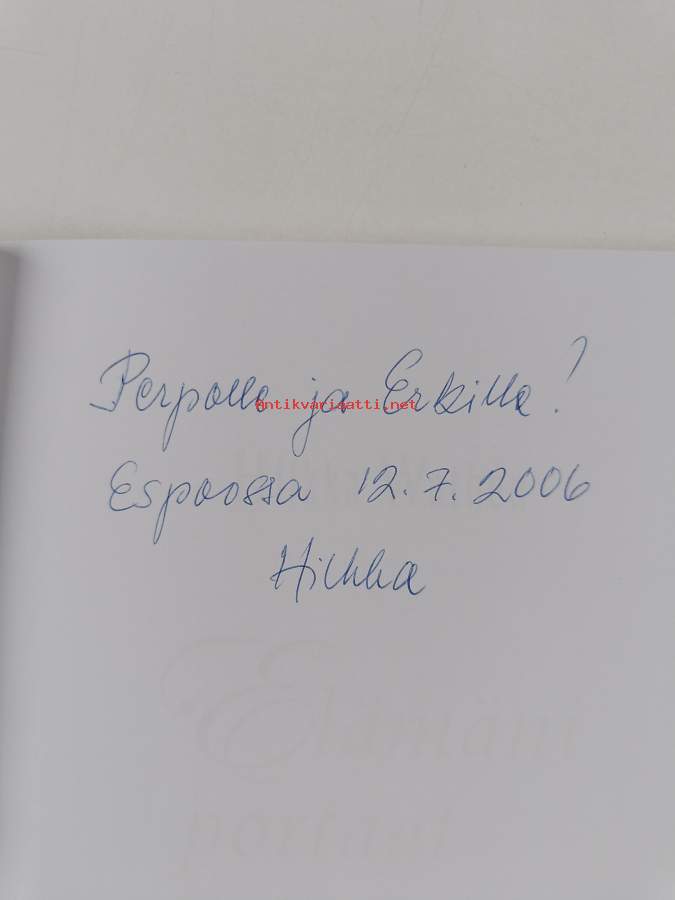 Perpolle ja Erkille!
Antikvariaatti.net
Espoossa 12.7.2006
Hilkka
Elämäni
portaat